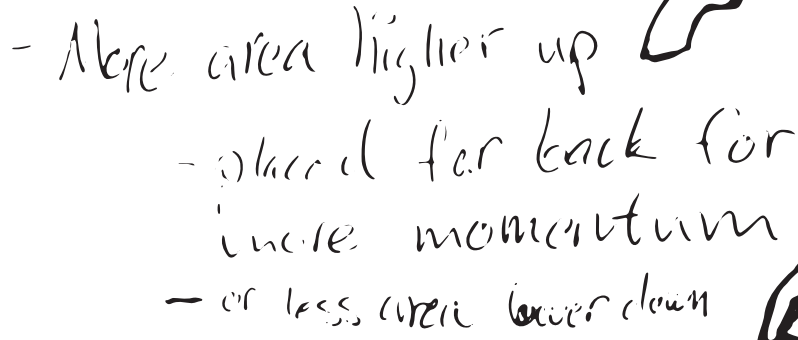 - More area higher up
- placed far back for
more momentum
- or less area lower down